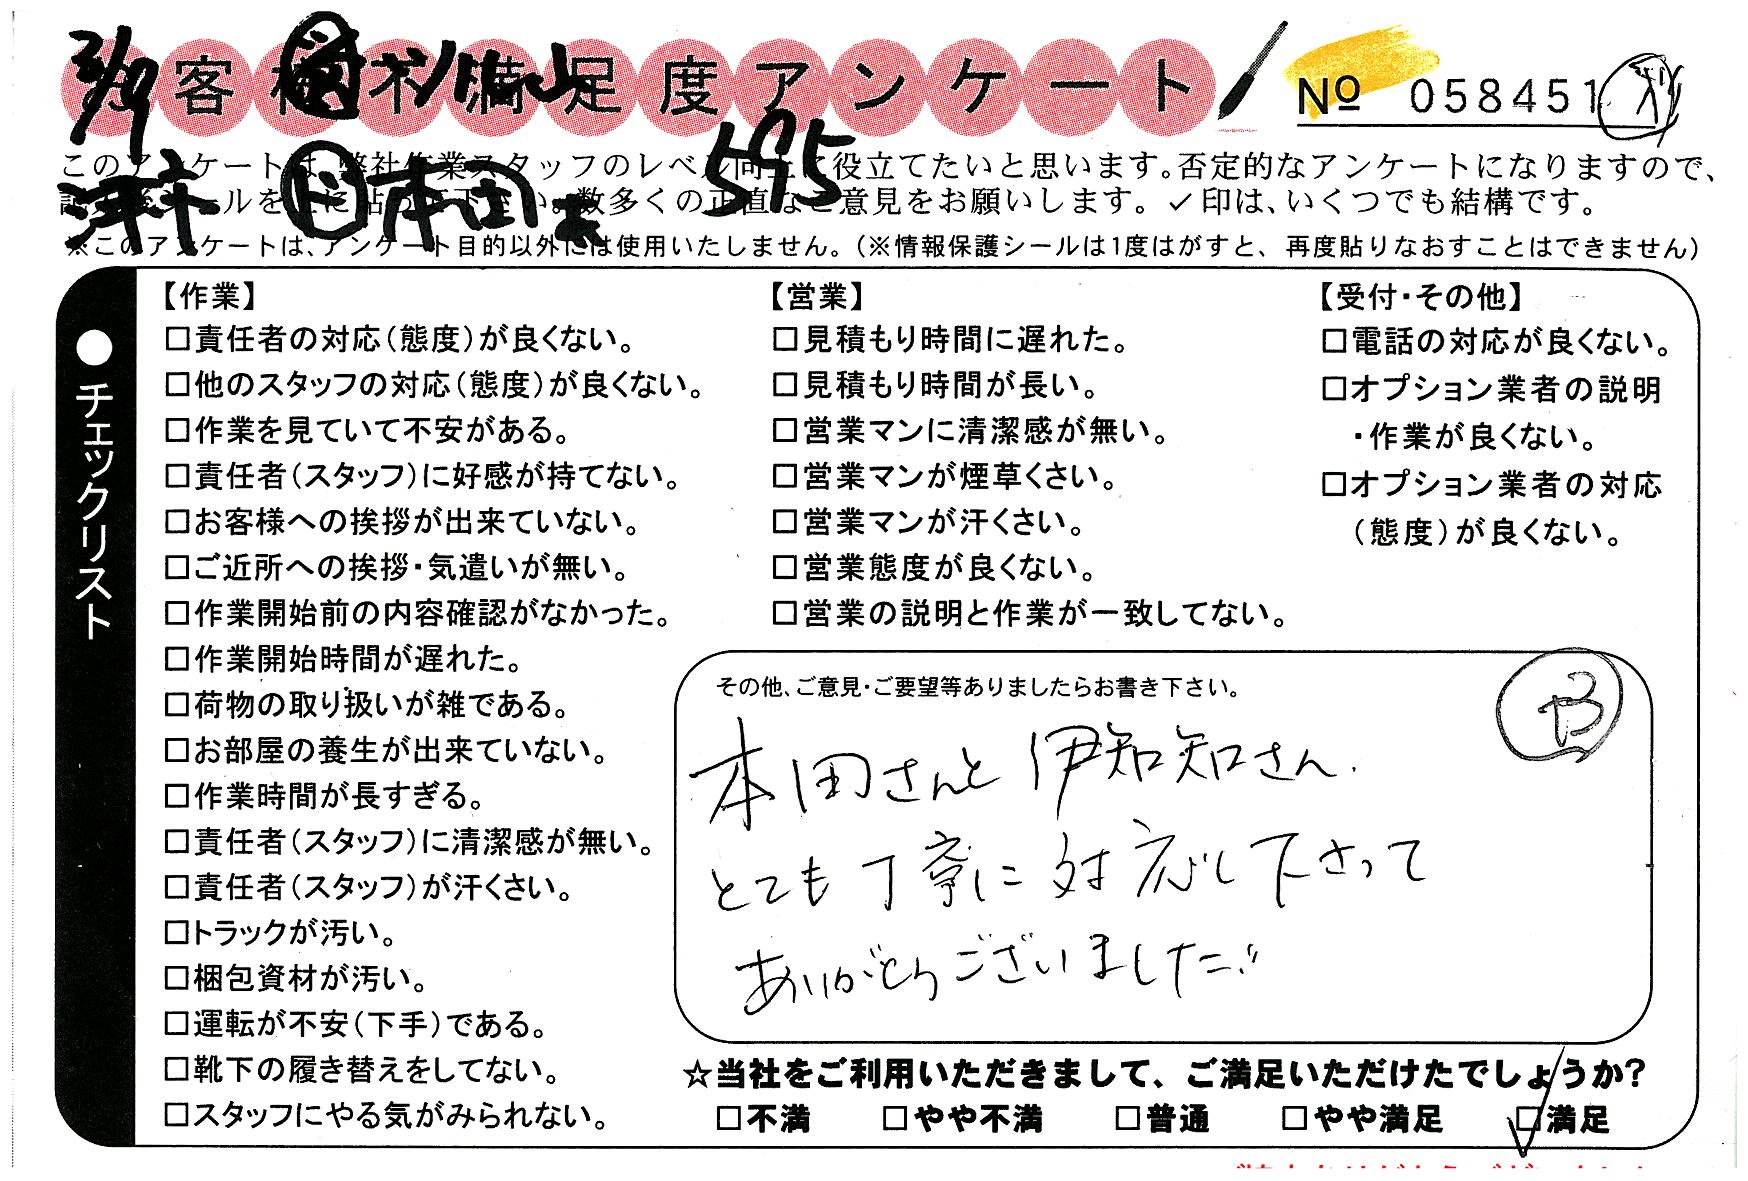 お客様不満足度アンケート
№ 058451
このアンケートは、弊社作業スタッフのレベル向上に役立てたいと思います。否定的なアンケートになりますので、
数多くの正直なご意見をお願いします。✓印は、いくつでも結構です。
※このアンケートは、アンケート目的以外には使用いたしません。(※情報保護シールは1度はがすと、再度貼りなおすことはできません)
3/9
595
本田
●チェックリスト
【作業】
□責任者の対応(態度)が良くない。
□他のスタッフの対応(態度)が良くない。
□作業を見ていて不安がある。
□責任者(スタッフ)に好感が持てない。
□お客様への挨拶が出来ていない。
□ご近所への挨拶・気遣いが無い。
□作業開始前の内容確認がなかった。
□作業開始時間が遅れた。
□荷物の取り扱いが雑である。
□お部屋の養生が出来ていない。
□作業時間が長すぎる。
□責任者(スタッフ)に清潔感が無い。
□責任者(スタッフ)が汗くさい。
□トラックが汚い。
□梱包資材が汚い。
□運転が不安(下手)である。
□靴下の履き替えをしてない。
□スタッフにやる気がみられない。
【営業】
□見積もり時間に遅れた。
□見積もり時間が長い。
□営業マンに清潔感が無い。
□営業マンが煙草くさい。
□営業マンが汗くさい。
□営業態度が良くない。
□営業の説明と作業が一致してない。
【受付・その他】
□電話の対応が良くない。
□オプション業者の説明
・作業が良くない。
□オプション業者の対応
(態度)が良くない。
その他、ご意見・ご要望等ありましたらお書き下さい。
本田さんと伊知知さん.
とても丁寧に対応し下さって
ありがとうございました!!
☆当社をご利用いただきまして、ご満足いただけたでしょうか?
□不満 □やや不満 □普通 □やや満足 ☑満足